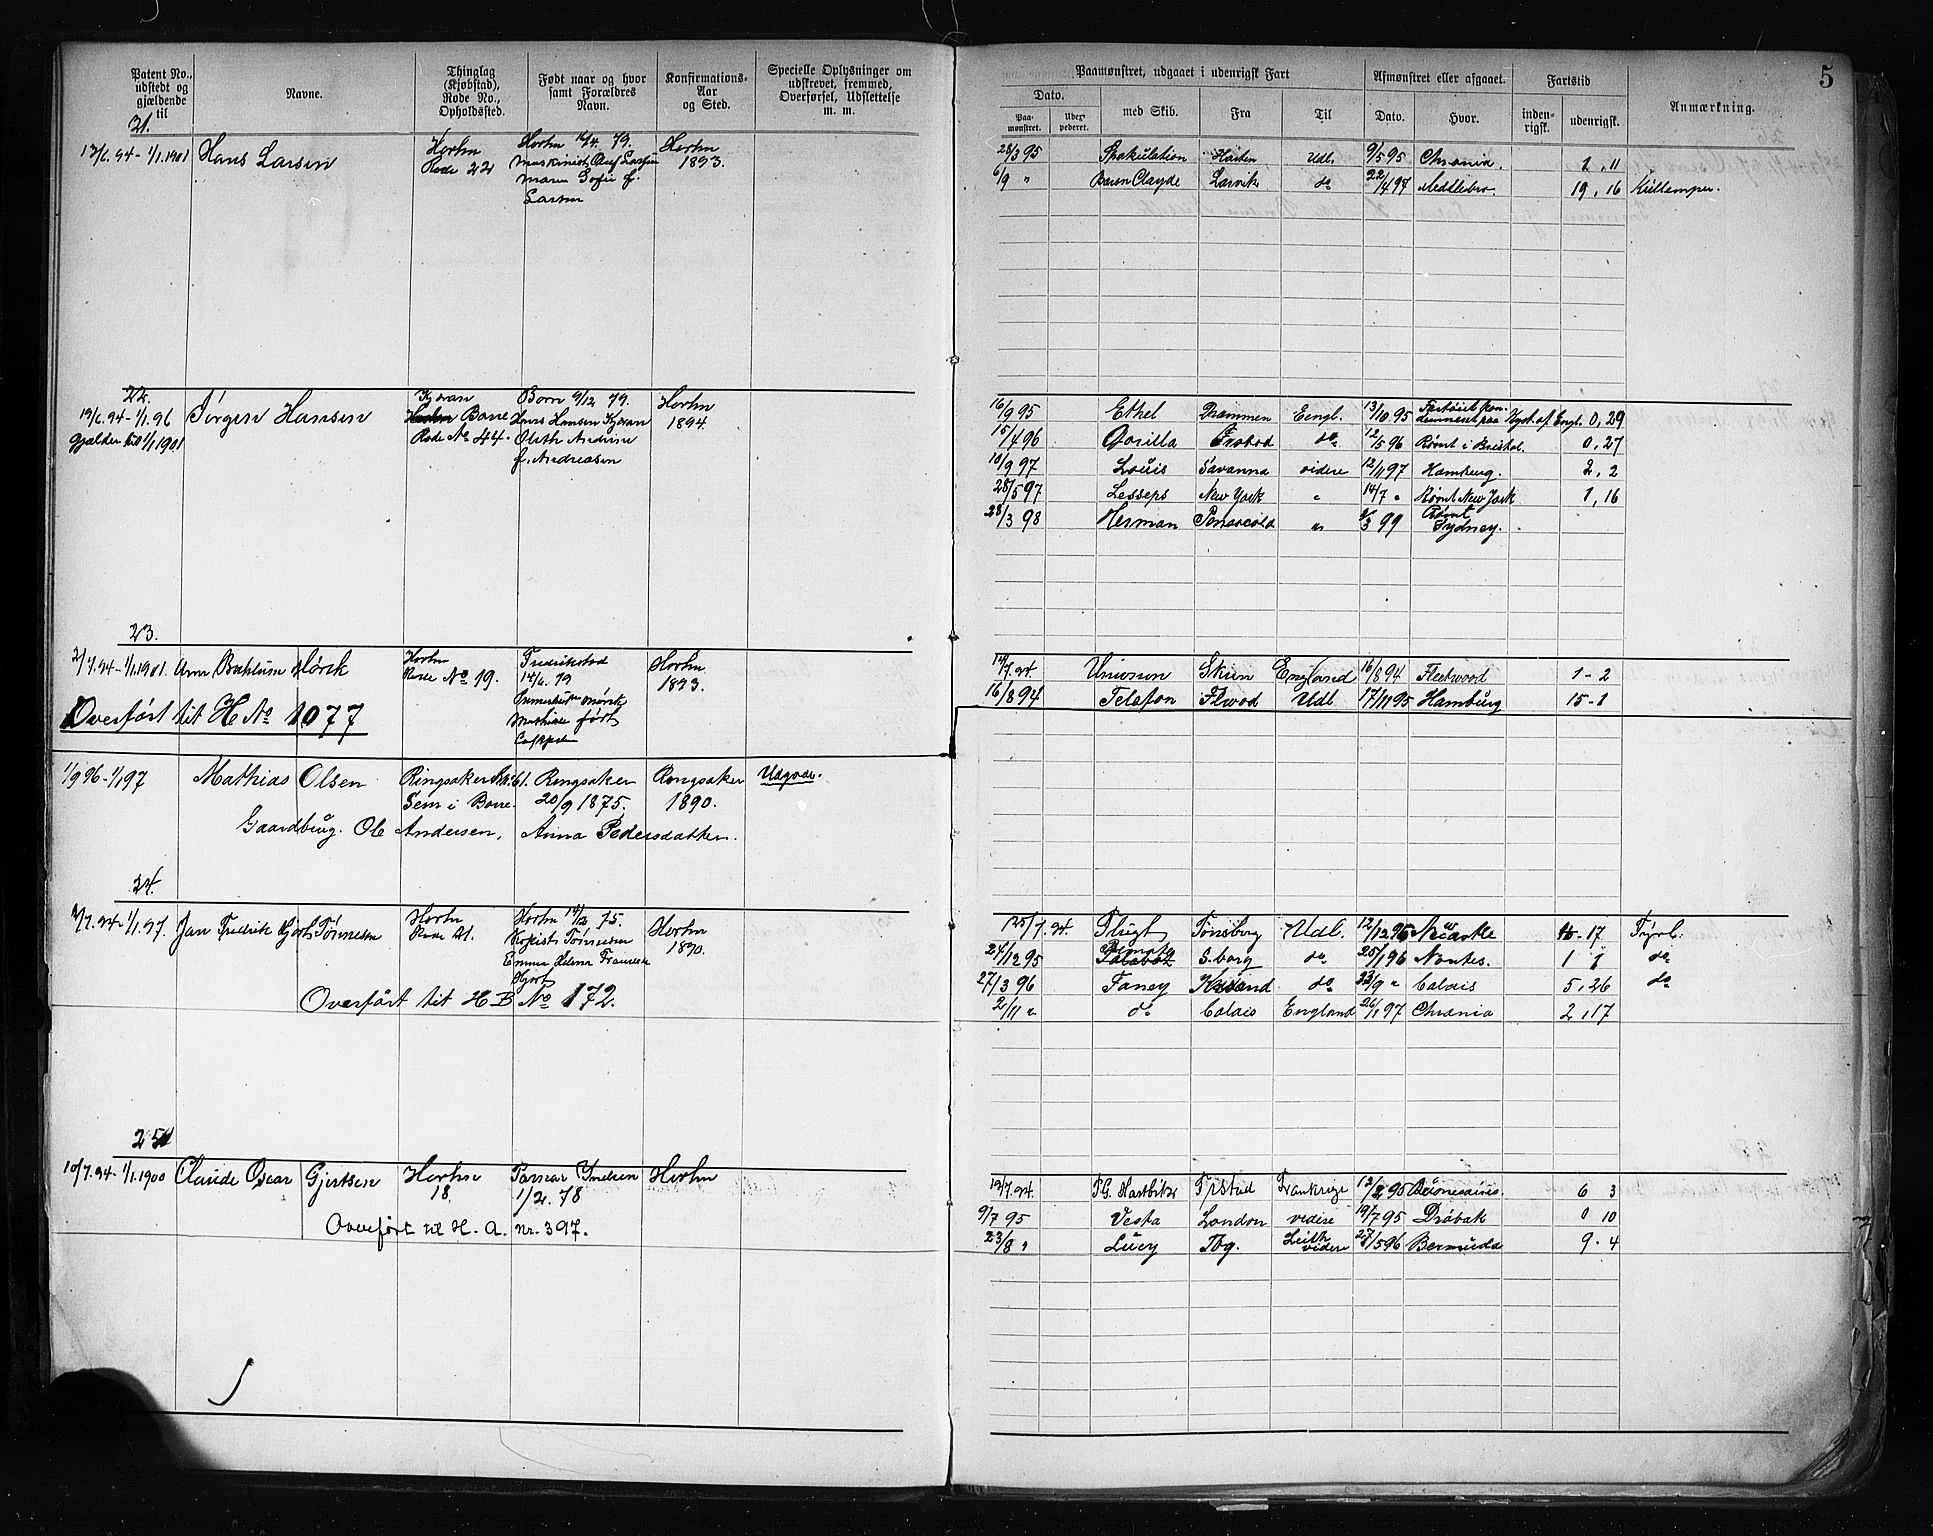 5
Patent No., udstedt og gjældende til
Navne.
Thinglag (Kjøbstad), Rode No., Opholdssted.
Født naar og hvor samt Forældres Navn.
Konfirmations- Aar og Sted.
Specielle Oplysninger om udskrevet, fremmed, Overførsel, Udslettelse m. m.
Paamønstret, udgaaet i udenrigsk Fart
Afmønstret eller afgaaet.
Fartstid
Anmærkning.
Dato.
Paa- mønstret.
med Skib.
Fra
Til
Dato.
Hvor.
inden- rigsk.
udenrigsk.
21.
13/6.94-1/1.1901 Hans Larsen
Horten
Rode 22
Horten
79.
Larsen
Horten
1893.
28/3 95 Spekulation Horten Udl. 9/5 95 Chrania. 1,11
6/9 " Larvik do 22/4 97 19,16
22.
19/6.94-1/1.96 Jørgen Hansen
Gjælder til 1/1 1901
Borre
Rode No 44.
Born 9/12 79.
Hans Hansen
f. Andreasen
Horten
1894.
16/9 95 Ethel Drammen Engl. 13/10 95 Kyst. af Engl. 0,29
15/4 96 Gorilla do 12/5 96 Rømt i Bristol. 0,27
10/9 97 Louis Savanna videre 12/11 97 Hamburg. 2,2
28/5 97 Lesseps New York " 14/7 " Rømt New York 1,16
28/3 98 Herman Pensacola " 99 Rømt Sydney.
23.
2/7.94-1/1.1901.
Horten
Rode No 19.
Fredrikstad
14/6.79
Horten
1893.
Overført til H No 1077
14/7.94. Unionen Skien England 16/8 94 Fleetwood 1-2
16/8 94 Telefon Flwod Udl 17/11 95 Hamburg 15-1
1/9 96-1/1 97 Mathias Olsen
Ringsaker
Sem i Borre.
Ringsaker
20/9 1875.
Ringsaker
1890.
Udgaar.
Gaardbrug. Ole Andersen, Anna Pedersdatter.
24.
2/7.94-1/1.97. Jan Fredrik Hjorth Tønnesen
Horten
Horten 14/2 75.
Kopist Tønnesen
Emma Helene
Hjort
Horten
1890.
Overført til H B No 172.
25/7.94. Flugt Tønsberg Udl. 12/12 95 17 Fyrb.
27/12 95 S.borg do 25/1 96 Nantes. 1 1 do
27/3 96 Fancy do 23/9 " Calais 5,26 do
2/11 " do Calais England 26/1 97 Chrania 2,17
25
10/7.94-1/1.1900 Claude Oscar Gjertsen
Horten
18
1/2. 78
Horten
Overført til H. A. nr. 397.
13/7.94. Frankrige 12/2 95 6 3
9/7 95 Vesta London videre 19/7 95 Drøbak 0 10
23/8 " Lucy Tbg. Leith videre 27/5 96 Bermuda 9-4